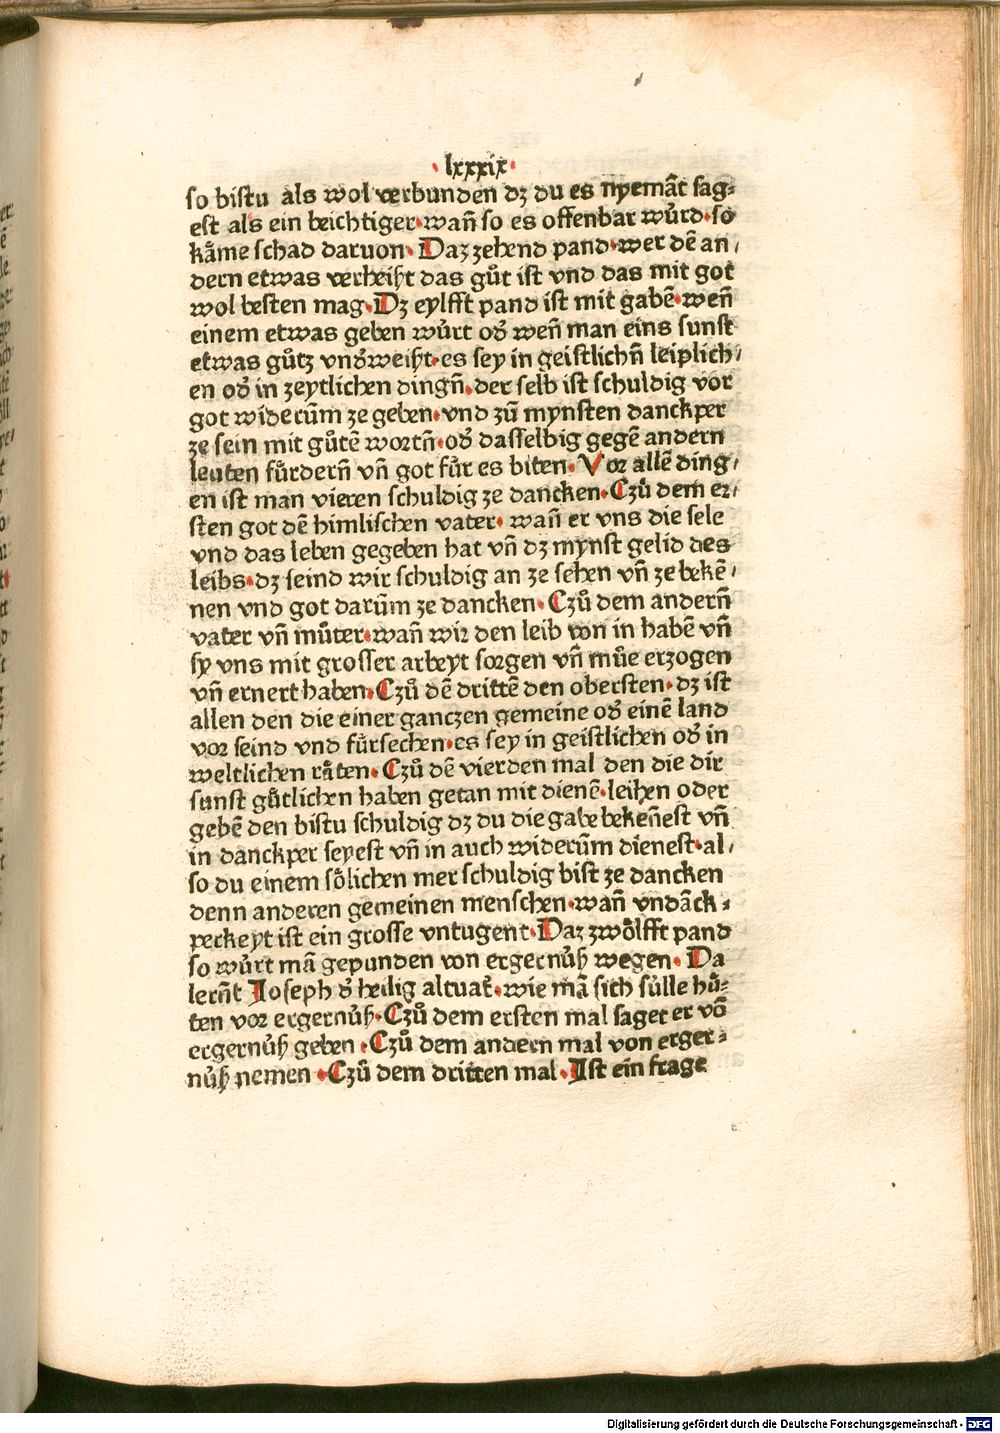 · lxxxix ·
so bistu als wol verbunden dz du es nyemāt sag⸗
est als ein beichtiger·wañ so es offenbar wůrd·so
kåme schad daruon· Daz zehend pand·wer dē an/
dern etwas verheißt das gůt ist vnd das mit got
wol besten mag·Dz eylfft pand ist mit gabē·weñ
einem etwas geben wůrt oď weñ man eins sunst
etwas gůtz vnďweißt·es sey in geistlichñ leiplich/
en oď in zeytlichen dingñ·der selb ist schuldig vor
got widerūm ze geben·vnd zū mynsten danckper
ze sein mit gůtē wortñ·oď dasselbig gegē andern
leuten fůrderñ vñ got fůr es biten· Vor allē ding/
en ist man vieren schuldig ze dancken·Czů dem er/
sten got dē himlischen vater· wañ er vns die sele
vnd das leben gegeben hat vñ dz mynst gelid des
leibs·dz seind wir schuldig an ze sehen vñ ze bekē/
nen vnd got darūm ze dancken·Czů dem anderñ
vater vñ můter·wañ wir den leib von in habē vñ
sy vns mit grosser arbeyt sorgen vñ můe erzogen
vñ ernert haben·Czů dē drittē den obersten·dz ist
allen den die einer ganczen gemeine oď einē land
vor seind vnd fůrsechen·es sey in geistlichen oď in
weltlichen råten·Czů dē vierden mal den die dir
sunst gůtlichen haben getan mit dienē·leihen oder
gebē den bistu schuldig dz du die gabe bekeñest vñ
in danckper seyest vñ in auch widerūm dienest·al/
so du einem sőlichen mer schuldig bist ze dancken
denn anderen gemeinen menschen·wañ vndāck⸗
perkeyt ist ein grosse vntugent·Daz zwőlfft pand
so wůrt mā gepunden von ergernůß wegen· Da
lerñt Joseph ď heilig altuať·wie mā sich sůlle hů⸗
ten vor ergernůß·Czů dem ersten mal saget er vō
ergernůß geben ·Czů dem andern mal von erger⸗
nůß nemen ·Czů dem dritten mal·Ist ein frage
Digitalisierung gefördert durch die Deutsche Forschungsgemeinschaft - DFG